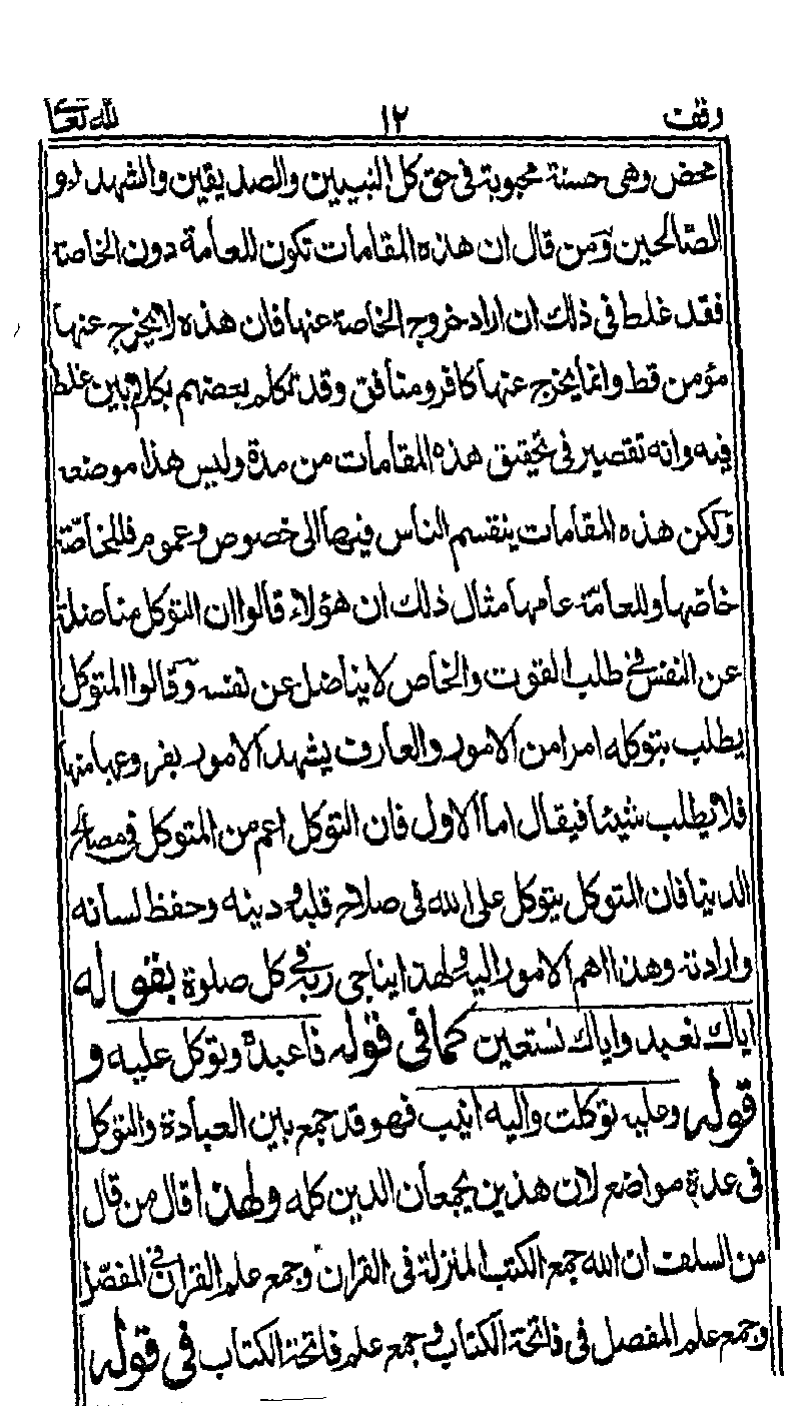 وقف ١٢ لله تعا
محض وهى حسنة محبوبة فى حق كل النبيين والصديقين والشهداء و
الصالحين ومن قال ان هذه المقامات تكون للعامة دون الخاصة
فقد غلط فى ذلك ان اراد خروج الخاصة عنها فان هذه لا يخرج عنها
مؤمن قط وانما يخرج عنها كافر ومنافق وقد تكلم بعضهم بكلام بين غلط
فيه وانه تقصير فى تحقيق هذه المقامات من مدة وليس هذا موضعه
ولكن هذه المقامات ينقسم الناس فيها الى خصوص وعموم فللخاصّة
خاصّها وللعامّة عامها مثال ذلك ان هؤلاء قالوا ان التوكل مناضلة
عن النفس فى طلب القوت والخاص لا يناضل عن نفسه وقالوا المتوكل
يطلب بتوكله امرا من الامور والعارف يشهد الامور بفروعها منها
فلا يطلب شيئا فيقال اما الاول فان التوكل اعم من المتوكل فى مصالح
الدينا فان المتوكل يتوكل على الله فى صلاح قلبه ودينه وحفظ لسانه
وارادته وهذا اهم الامور اليه ولهذا يناجى ربه فى كل صلوة بقوله
اياك نعبد واياك نستعين كما فى قوله فاعبده وتوكل عليه و
قوله وعليه توكلت واليه انيب فهو قد جمع بين العبادة والتوكل
فى عدة مواضع لان هذين يجمعان الدين كله ولهذا قال من قال
من السلف ان الله جمع الكتب المنزلة فى القران وجمع علم القران فى المفصّل
وجمع علم المفصل فى فاتحة الكتاب وجمع علم فاتحة الكتاب فى قوله